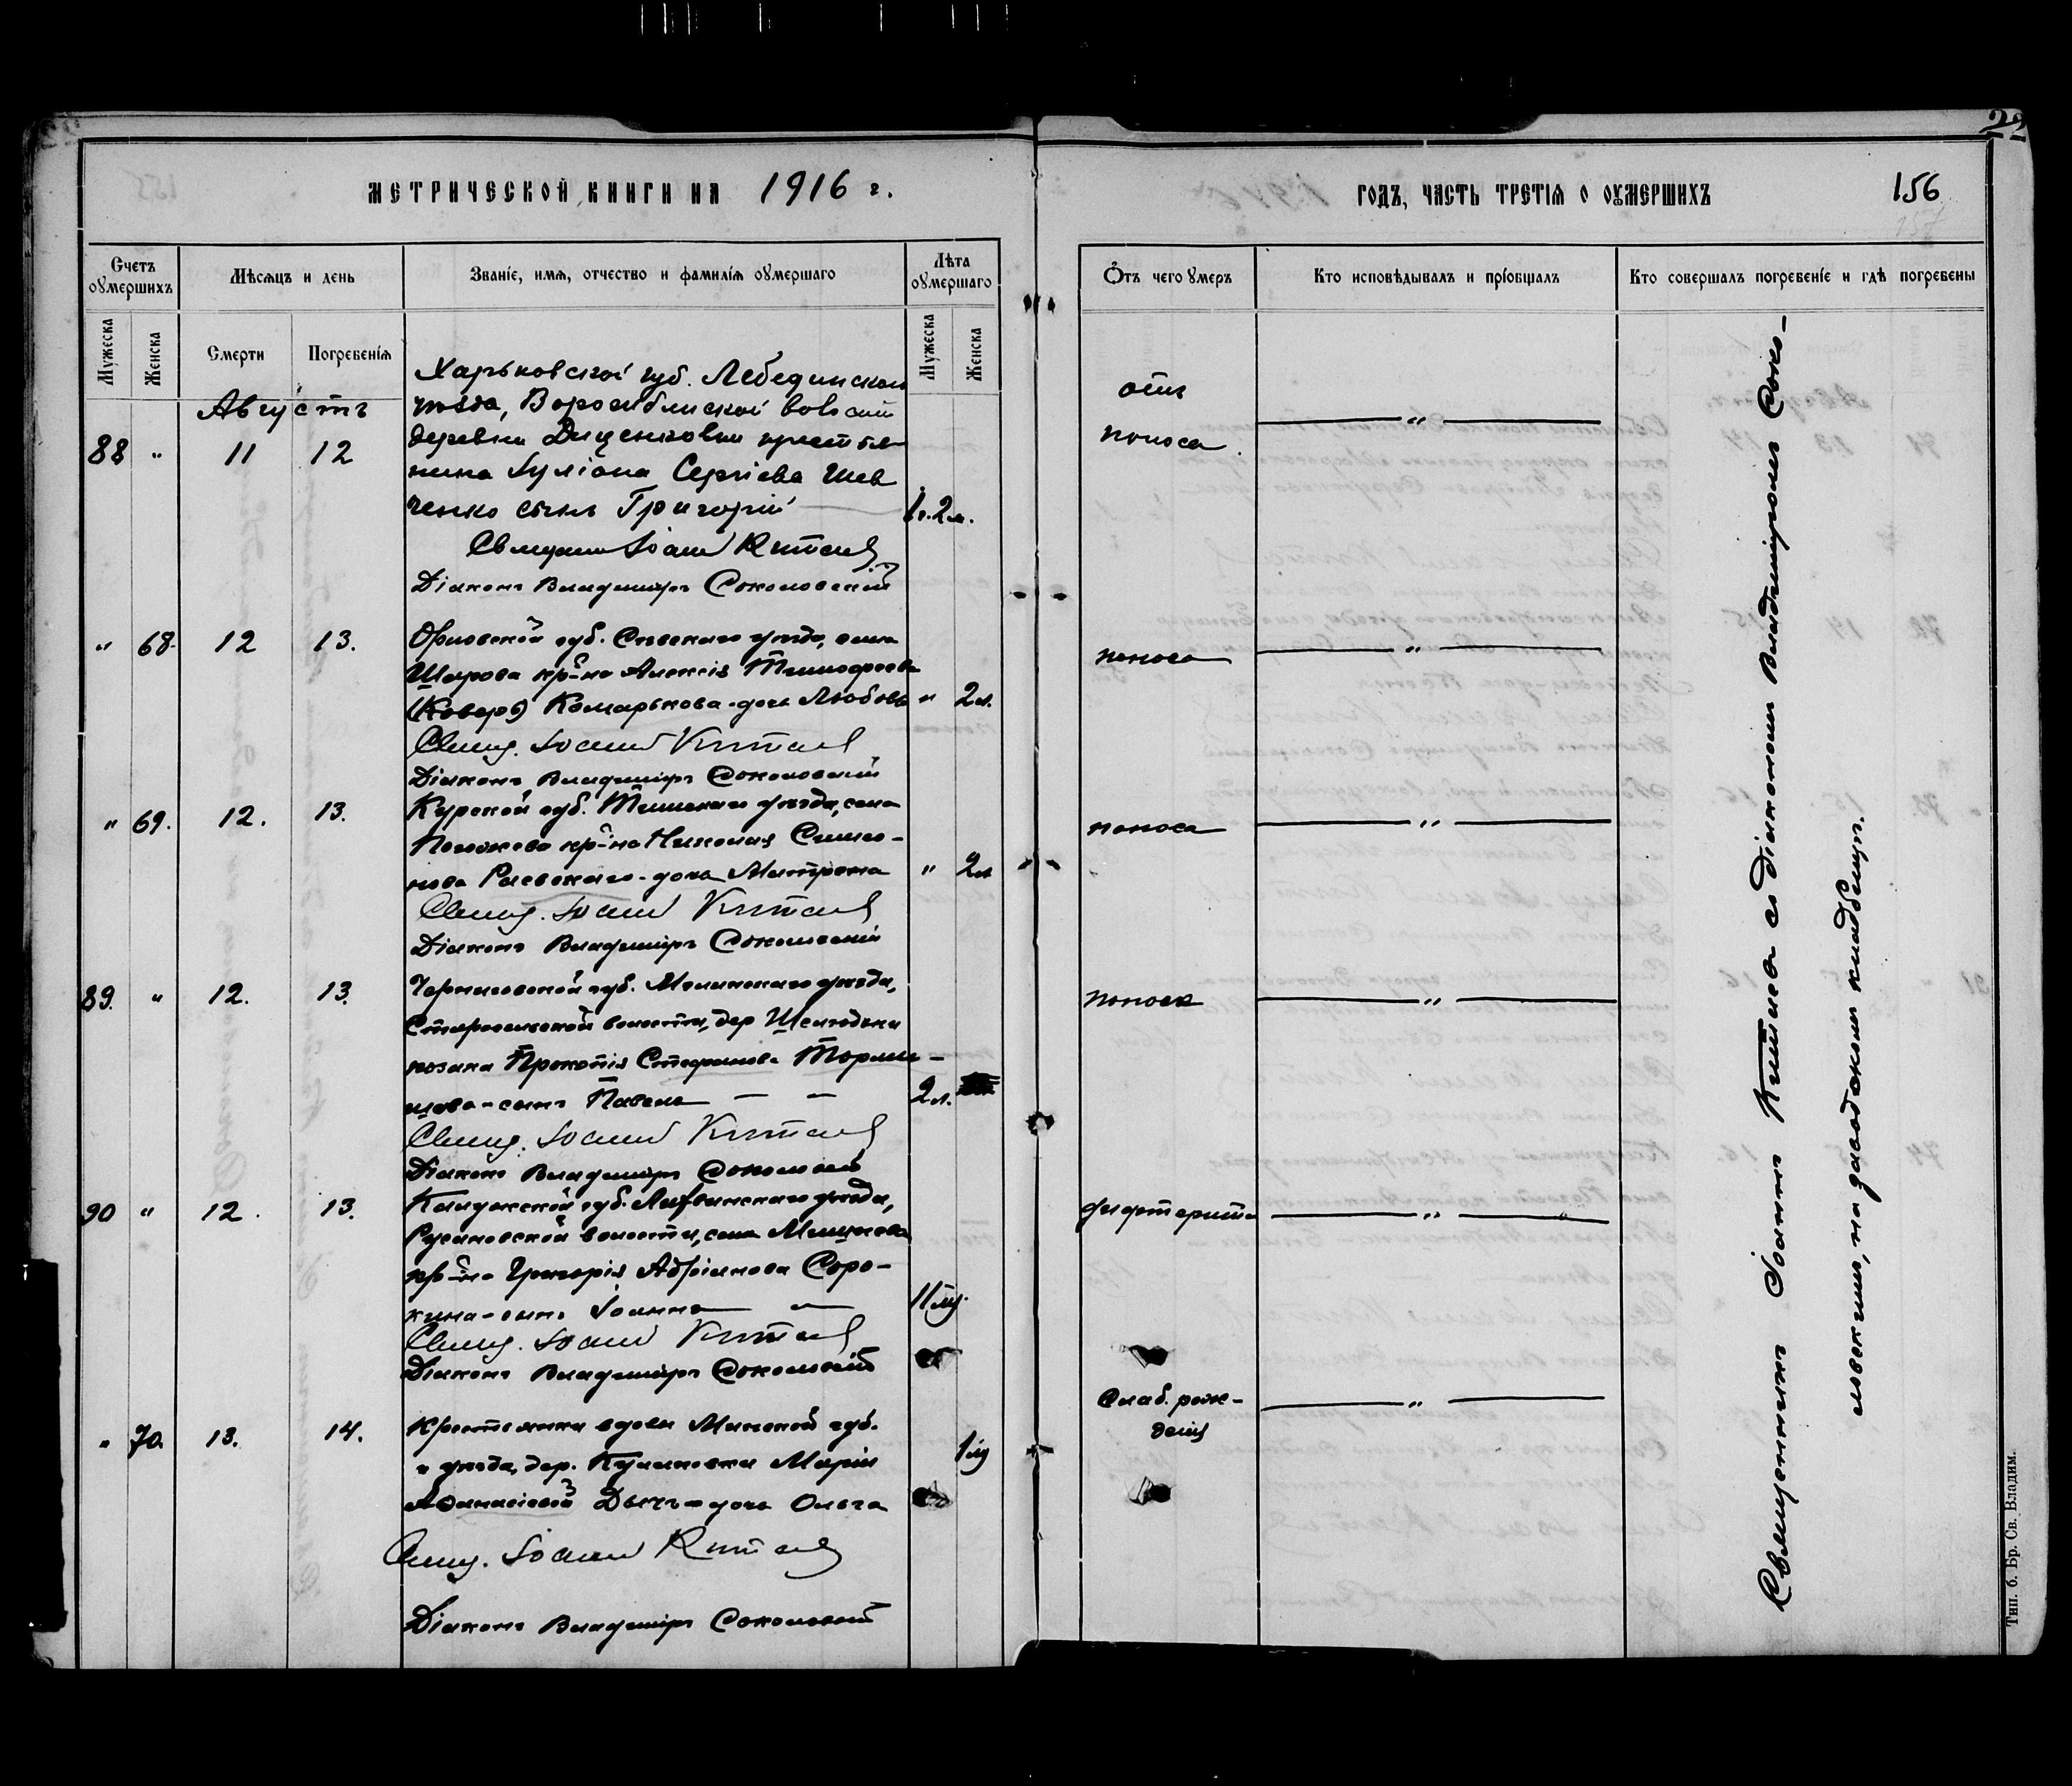 МЕТРИЧЕСКОЙ КНИГИ НА 1916 г.
Счетъ оумершихъ
Мѣсяцъ и день
Званіе, имя, отчество и фамилія оумершаго
Лѣта оумершаго
Мужеска
Женска
Смерти
Погребенія
Мужеска
Женска
Августъ
88 " 11 12
Харьковской губ. Лебединскаго
уѣзда, Ворожбянской волости
деревни Диценковки крестья-
нина Іуліана Сергіева Шев
ченко сынъ Григорій 1 г. 2 м.
Священ. Іоаннъ Китаевъ
Діаконъ Владиміръ Соколовскій
" 68. 12 13.
Орловской губ. Сѣвскаго уѣзда, села
Шарова кр-на Алексія Тимофеева
(Коверъ) Комарькова-дочь Любовь " 2 м.
Свящ. Іоаннъ Китаевъ
Діаконъ Владиміръ Соколовскій
" 69. 12. 13.
Курской губ. Тимскаго уѣзда, села
кр-на Николая Симо-
нова Раевскаго-дочь Матрона " 2 л.
Свящ. Іоаннъ Китаевъ
Діаконъ Владиміръ Соколовскій
89. " 12. 13.
Черниговской губ. Мглинскаго уѣзда,
Старосельской волости, дер Шелюдьки
козака Прокопія Стефанова Торми-
щева-сынъ Павелъ — — 2 л.
Свящ. Іоаннъ Китаевъ
Діаконъ Владиміръ Соколовскій
90 " 12. 13.
Калужской губ. Лихвинскаго уѣзда,
Русановской волости, села Мишнева
кр-на Григорія Адріанова Соро-
кина-сынъ Іоаннъ — 11 м.
Свящ. Іоаннъ Китаевъ
Діаконъ Владиміръ Соколовскій
" 70. 13. 14.
Крестьянки вдовы Минской губ.
и уѣзда, дер. Куликовки Маріи
Афанасіевой Дычъ-дочь Ольга 1 м
Свящ. Іоаннъ Китаевъ
Діаконъ Владиміръ Соколовскій
ГОДЪ, ЧАСТЬ ТРЕТІЯ О ОУМЕРШИХЪ
156
Отъ чего умеръ
Кто исповѣдывалъ и пріобщалъ
Кто совершалъ погребеніе и гдѣ погребены
отъ
поноса — " —
поноса — " —
поноса — " —
поноса — " —
дифтерита — " —
Слаб. рож-
денія — " —
Священникъ Іоаннъ Китаевъ съ діакономъ Владиміромъ Соко-
ловскимъ, на заводскомъ кладбищѣ.
Тип. б. Бр. Св. Владим.